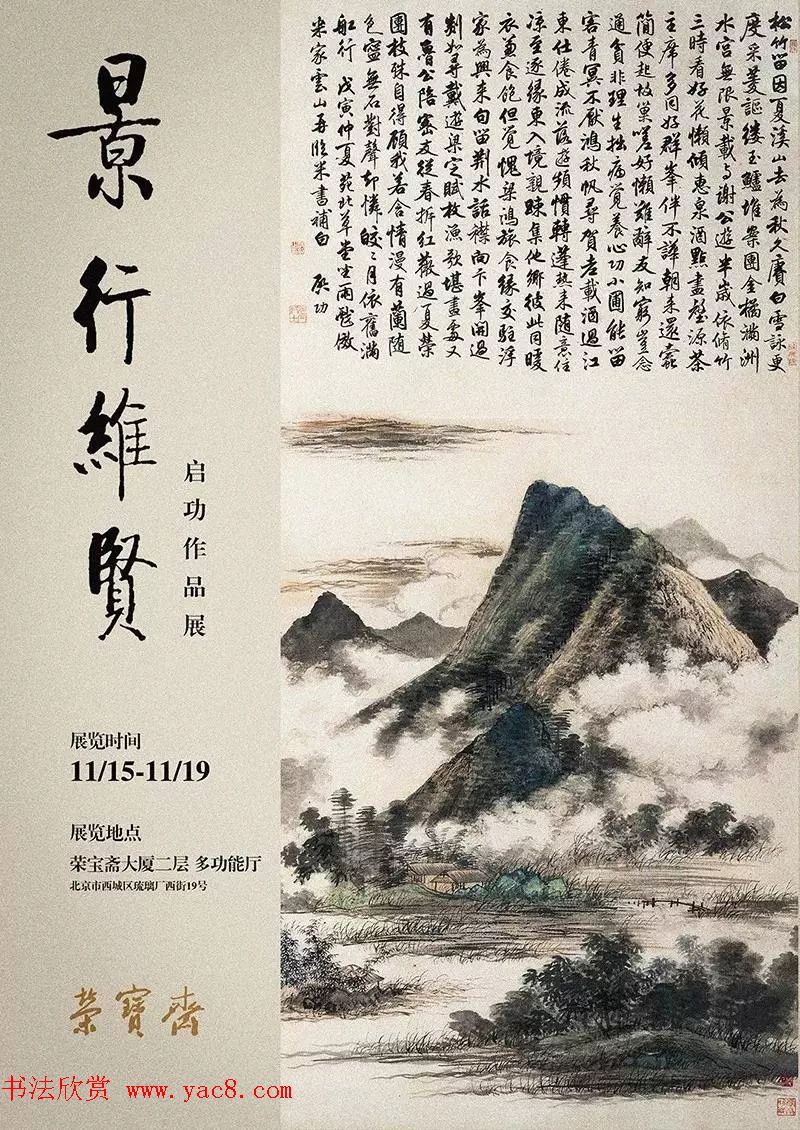 景行維賢
启功作品展
展览时间
11/15-11/19
展览地点
荣宝斋大厦二层 多功能厅
北京市西城区琉璃厂西街19号
榮寶齋
松竹留因夏溪山去為秋久賡白雪詠更
度采菱謳縷玉鱸堆案團金橘滿洲
水宮無限景載与謝公遊半歲依脩竹
三時看好花懶傾惠泉酒點盡壑源茶
主席多同好群峯伴不譁朝来還蠹
簡便起故巢嗟好懶難辭友知窮豈念
通貧非理生拙病覺養心功小圃能留
客青冥不厭鴻秋帆尋賀老載酒過江
東仕倦成流落遊頻慣轉蓬熱来隨意住
凉至逐緣東入境親踈集他鄉彼此同暖
衣兼食飽但覺愧梁鴻旅食緣交駐浮
家為興来句留荊水話襟向卞峯開過
剡如尋戴遊梁定賦枚漁歌堪畫處又
有魯公陪密友從春拆紅薇過夏榮
團枝殊自得顧我若含情漫有蘭隨
色寧無石對聲却憐皎〻月依舊滿
舡行 戊寅仲夏苑北草堂坐雨戲倣
米家雲山再臨米書補白 啓功
书法欣赏 www.yac8.com